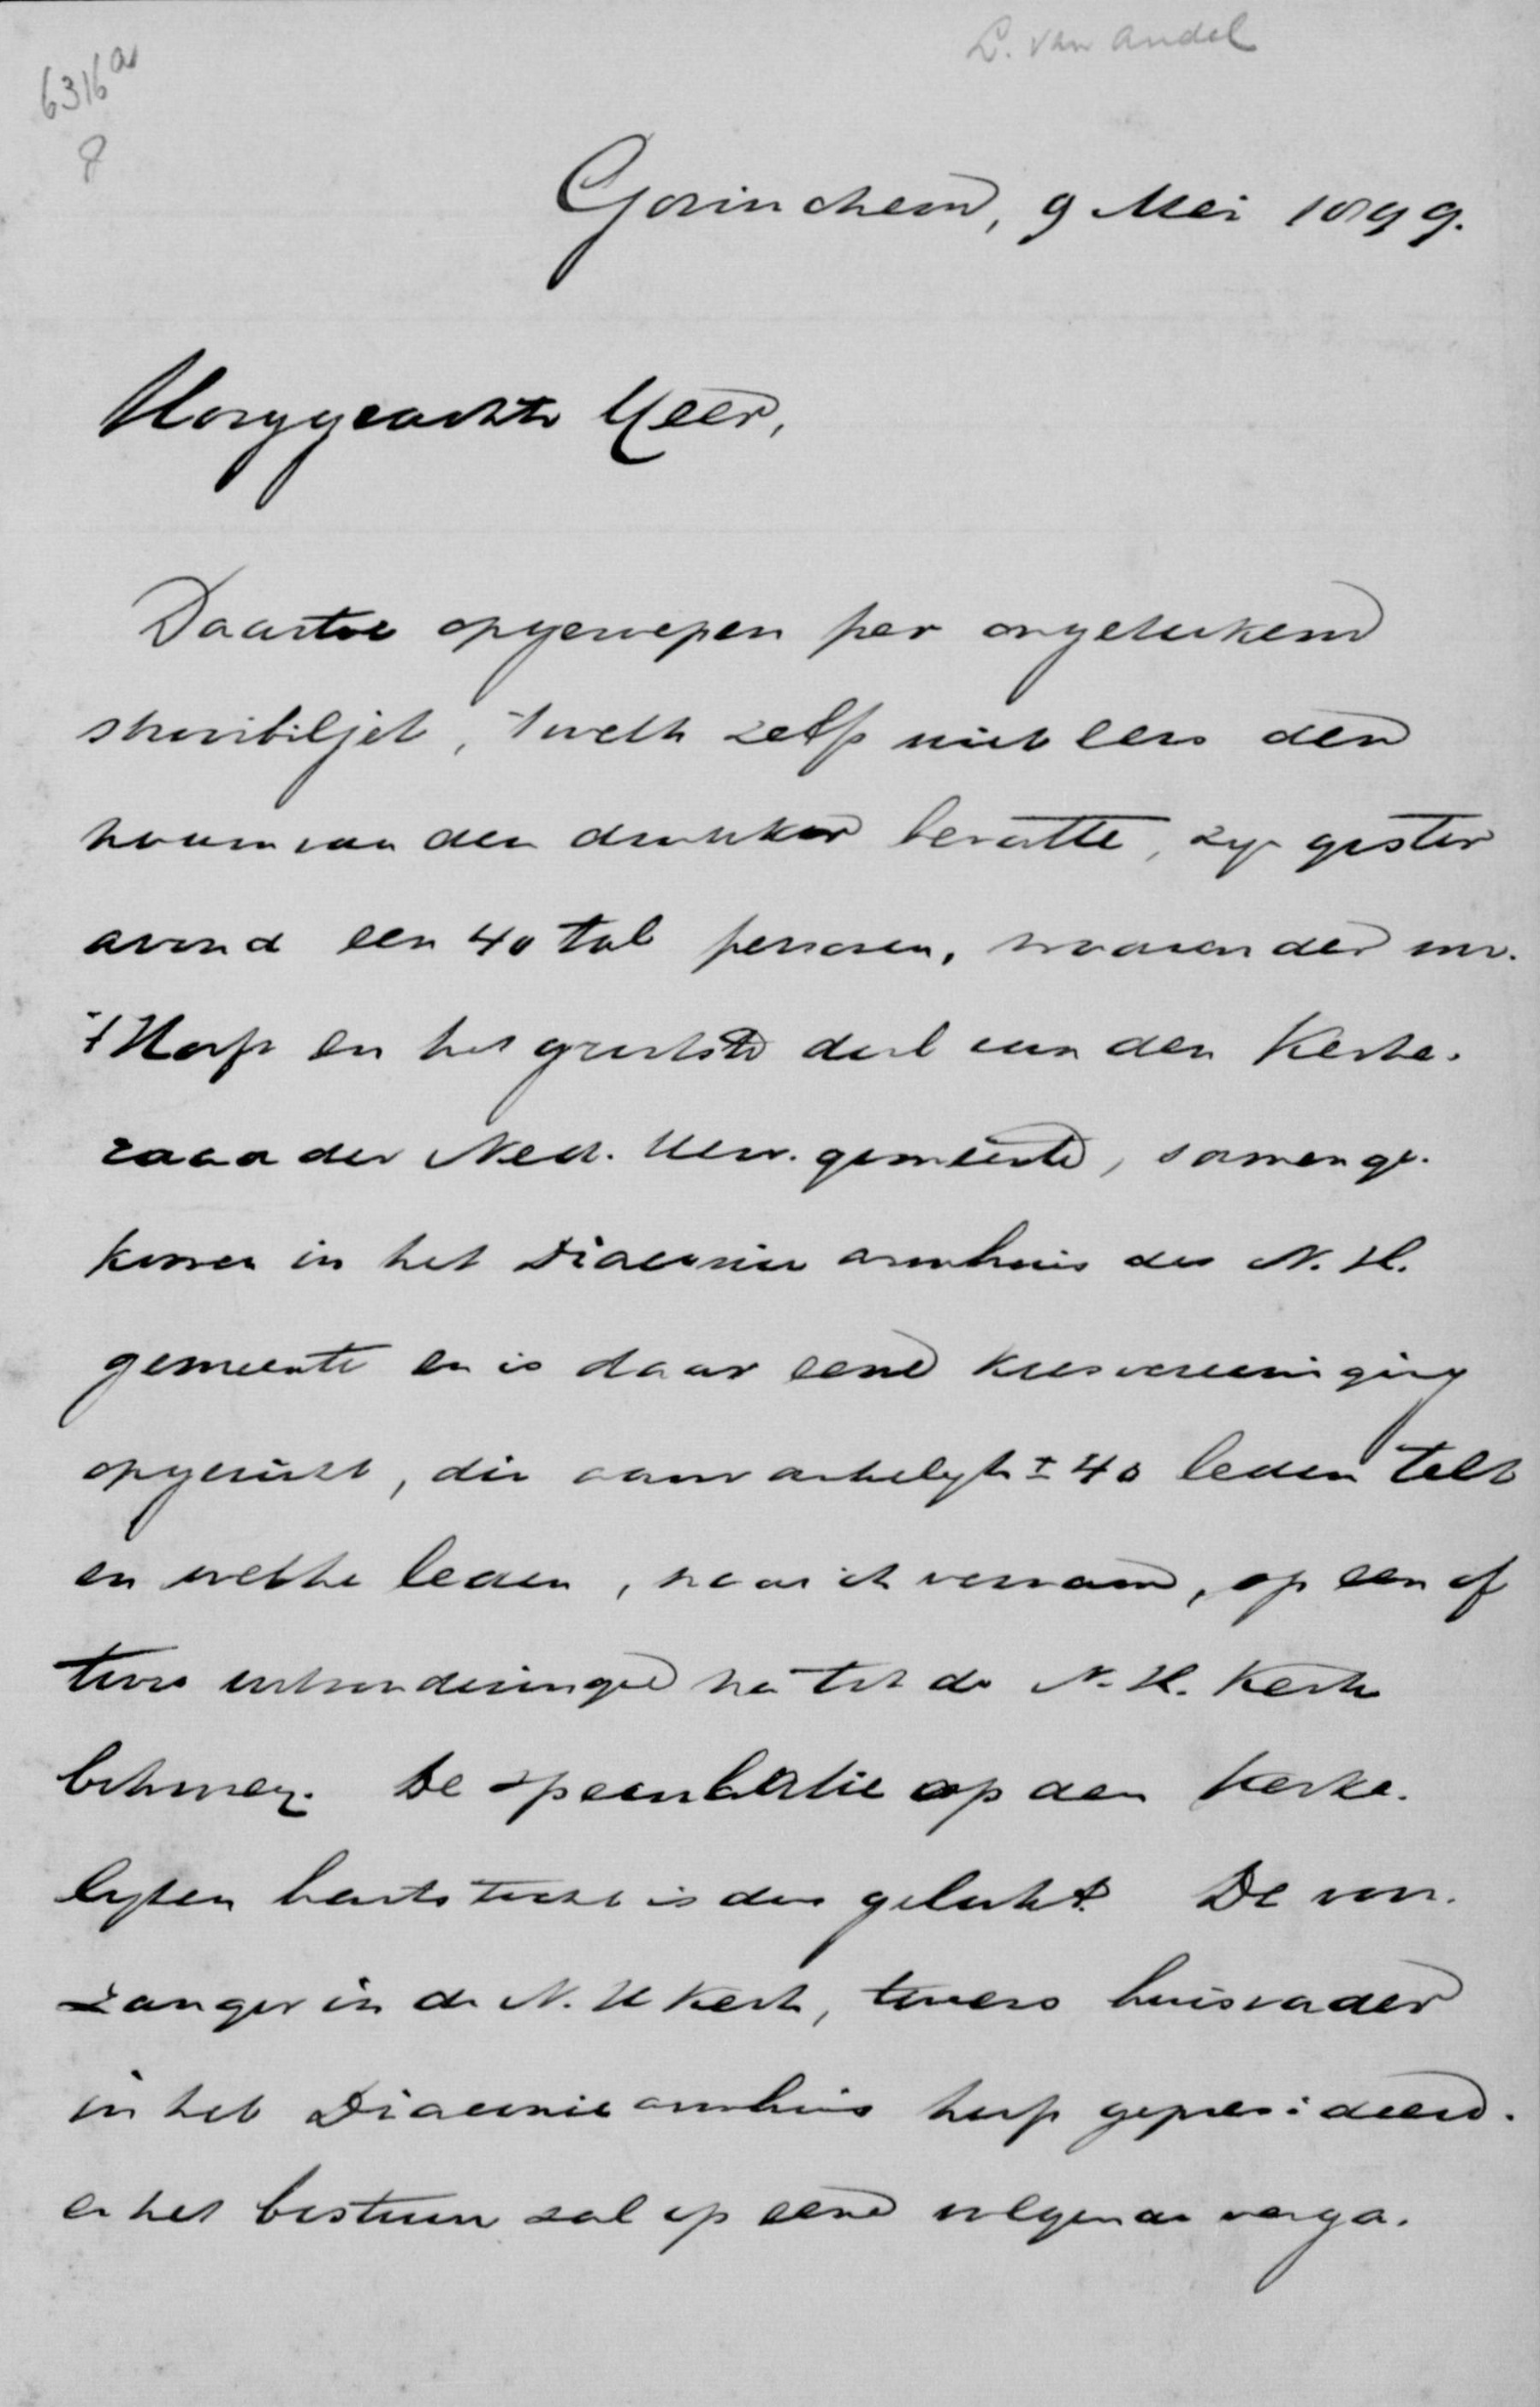 L. van Andel
6316a
8
Gorinchem, 9 Mei 1899.
Hooggeachte Heer,
Daartoe opgeroepen per ongeteekend
strooibiljet, 't welk zelfs niet eens den
naam van den drukker bevatte, zijn gister
avond een 40 tal personen, waaronder mr.
't Hooft en het grootste deel van den Kerke-
raad der Ned. Herv. gemeente, samenge-
komen in het Diaconie armhuis der N. H.
gemeente en is daar eene kiesvereeniging
opgericht, die aanvankelijk ± 40 leden telt
en welke leden, naar ik vernam, op een of
twee uitzonderingen na tot de N. H. Kerk
behooren. De speculatie op den kerke-
lijken hartstocht is dus gelukt. De voor-
zanger in de N. H Kerk, tevens huisvader
in het Diaconie armhuis heeft gepresideerd.
en het bestuur zal op eene volgende verga-